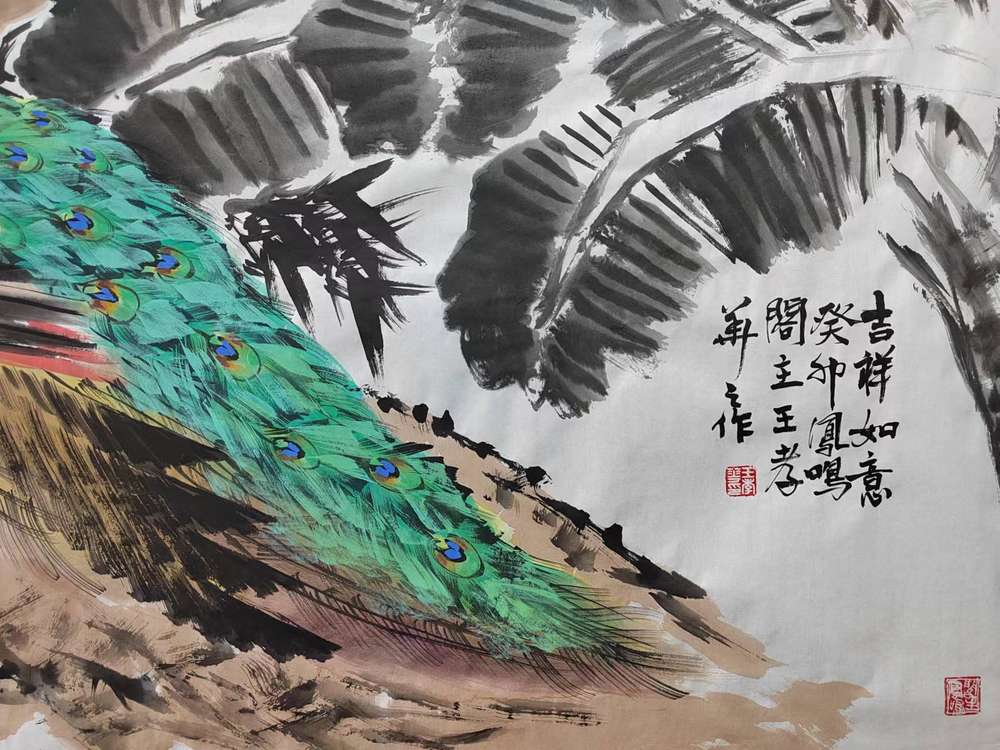 吉祥如意
癸卯鳳鳴
閣主王孝
華作